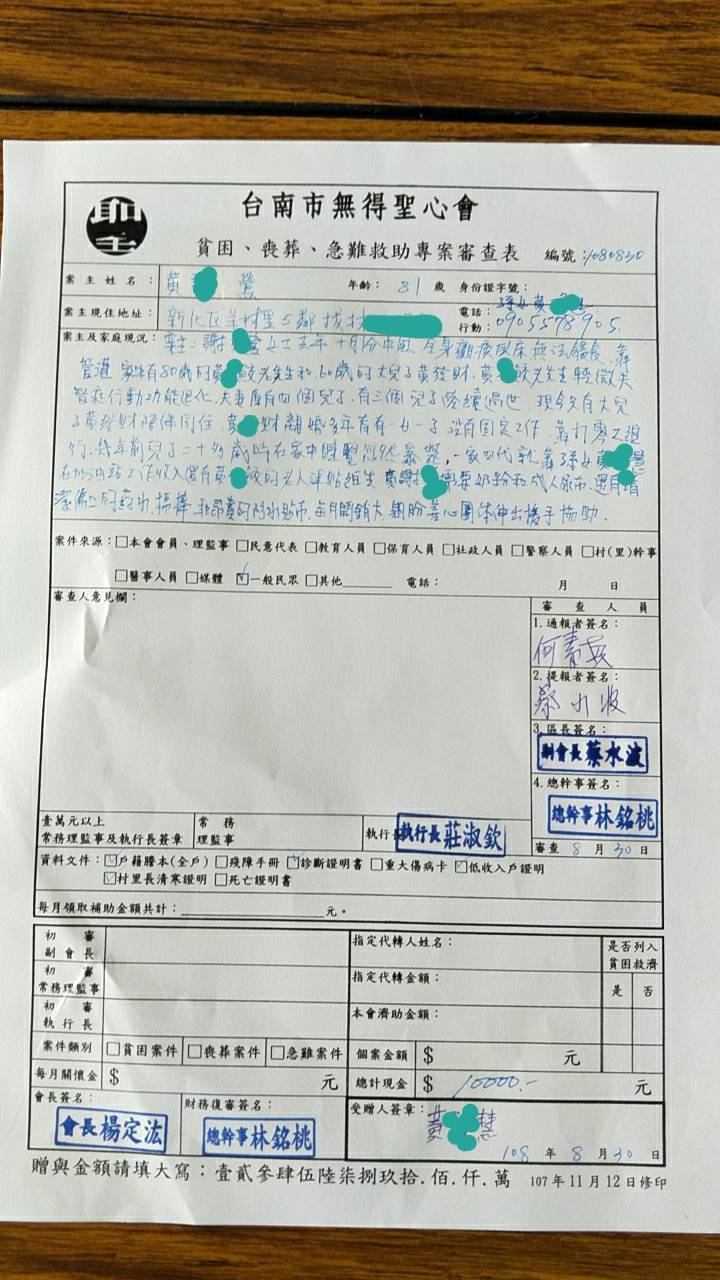 台南市無得聖心會
貧困、喪葬、急難救助專案審查表 編號:1080830
案主姓名: 黃 鶯 年齡: 81 歲 身份證字號:
案主現住地址: 新化區羊林里5鄰 電話: 孫女黃
行動: 0905578905
案主及家庭現況: 案主:謝 女士去年十月份中風 全身癱瘓臥床無法進食 靠
管灌 家中有80歲的黃 老先生和60歲的大兒子黃發財 黃 老先生輕微失
智症行動功能退化 夫妻原有四個兒子 有三個兒子陸續過世 現今只有大兒
子黃發財陪伴同住 黃 財離婚多年育有一女一子 沒有固定工作 靠打零工維
幾年前兒子二十多歲時在家中 一家四代就靠孫女黃 慧
在加油站工作收入還有黃 的老人津貼維生 需要奶粉和成人尿布
每月開銷大 盼善心團體伸出援手協助
案件來源:□本會會員、理監事 □民意代表 □教育人員 □保育人員 □社政人員 □警察人員 □村(里)幹事
□醫事人員 □媒體 ☑一般民眾 □其他______ 電話: 月 日
審查人意見欄: 審查人員
1.通報者簽名:
何青
2.提報者簽名:
蔡水波
3.區長簽名:
副會長 蔡水波
4.總幹事簽名:
總幹事 林銘桃
壹萬元以上 常務 執行長 執行長 莊淑欽
常務理監事及執行長簽章 理監事 審查 8 月 30 日
資料文件:☑戶籍謄本(全戶) □殘障手冊 ☑診斷證明書 □重大傷病卡 ☑低收入戶證明
☑村里長清寒證明 □死亡證明書
每月領取補助金額共計:______________元。
初審 指定代轉人姓名: 是否列入
副會長 貧困救濟
初審 指定代轉金額: 是 否
常務理監事
初審 本會濟助金額:
執行長
案件類別 □貧困案件 □喪葬案件 □急難案件 個案金額 $ 元
每月關懷金 $ 元 總計現金 $ 10000.- 元
會長簽名: 財務復審簽名: 受贈人簽章: 黃 慧
會長 楊定浤 總幹事 林銘桃 108 年 8 月 30 日
贈與金額請填大寫:壹貳參肆伍陸柒捌玖拾.佰.仟.萬 107年11月12日修印